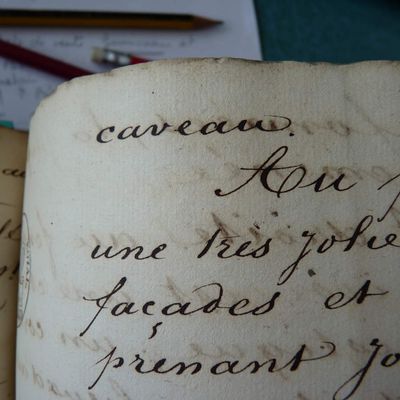 caveau.
Au
une très jolie
façades et
prenant